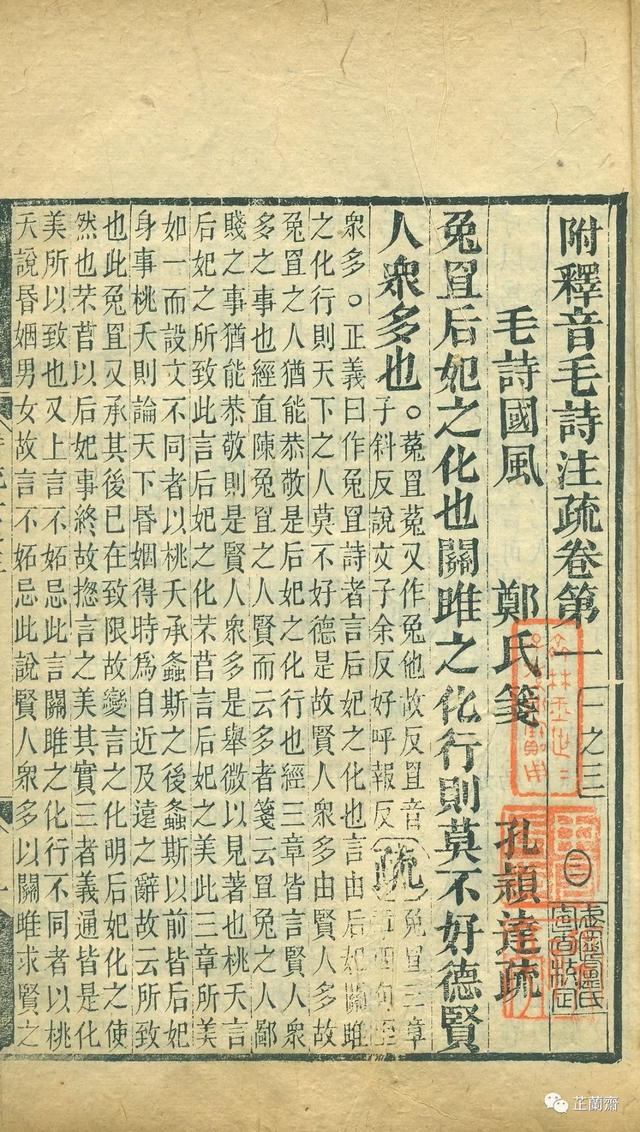 附釋音毛詩注疏卷第一 一之三 ㊂
毛詩國風 鄭氏箋 孔穎達疏
兔罝后妃之化也關雎之化行則莫不好德賢
人衆多也。
菟罝菟又作兔他故反罝音
子斜反說文子余反好呼報反
疏
兔罝三章
四句至
衆多。正義曰作兔罝詩者言后妃之化也言由后妃關雎
之化行則天下之人莫不好德是故賢人衆多由賢人多故
兔罝之人猶能恭敬是后妃之化行也經三章皆言賢人衆
多之事也經直陳兔罝之人賢而云多者箋云罝兔之人鄙
賤之事猶能恭敬則是賢人衆多是舉微以見著也桃夭言
后妃之所致此言后妃之化芣苢言后妃之美此三章所美
如一而設文不同者以桃夭承螽斯之後螽斯以前皆后妃
身事桃夭則論天下昏姻得時爲自近及遠之辭故云所致
也此兔罝又承其後已在致限故變言之化明后妃化之使
然也芣苢以后妃事終故揔言之美其實三者義通皆是化
美所以致也又上言不妬忌此言關雎之化行不同者以桃
夭說昏姻男女故言不妬忌此說賢人衆多以關雎求賢之
芷蘭齋